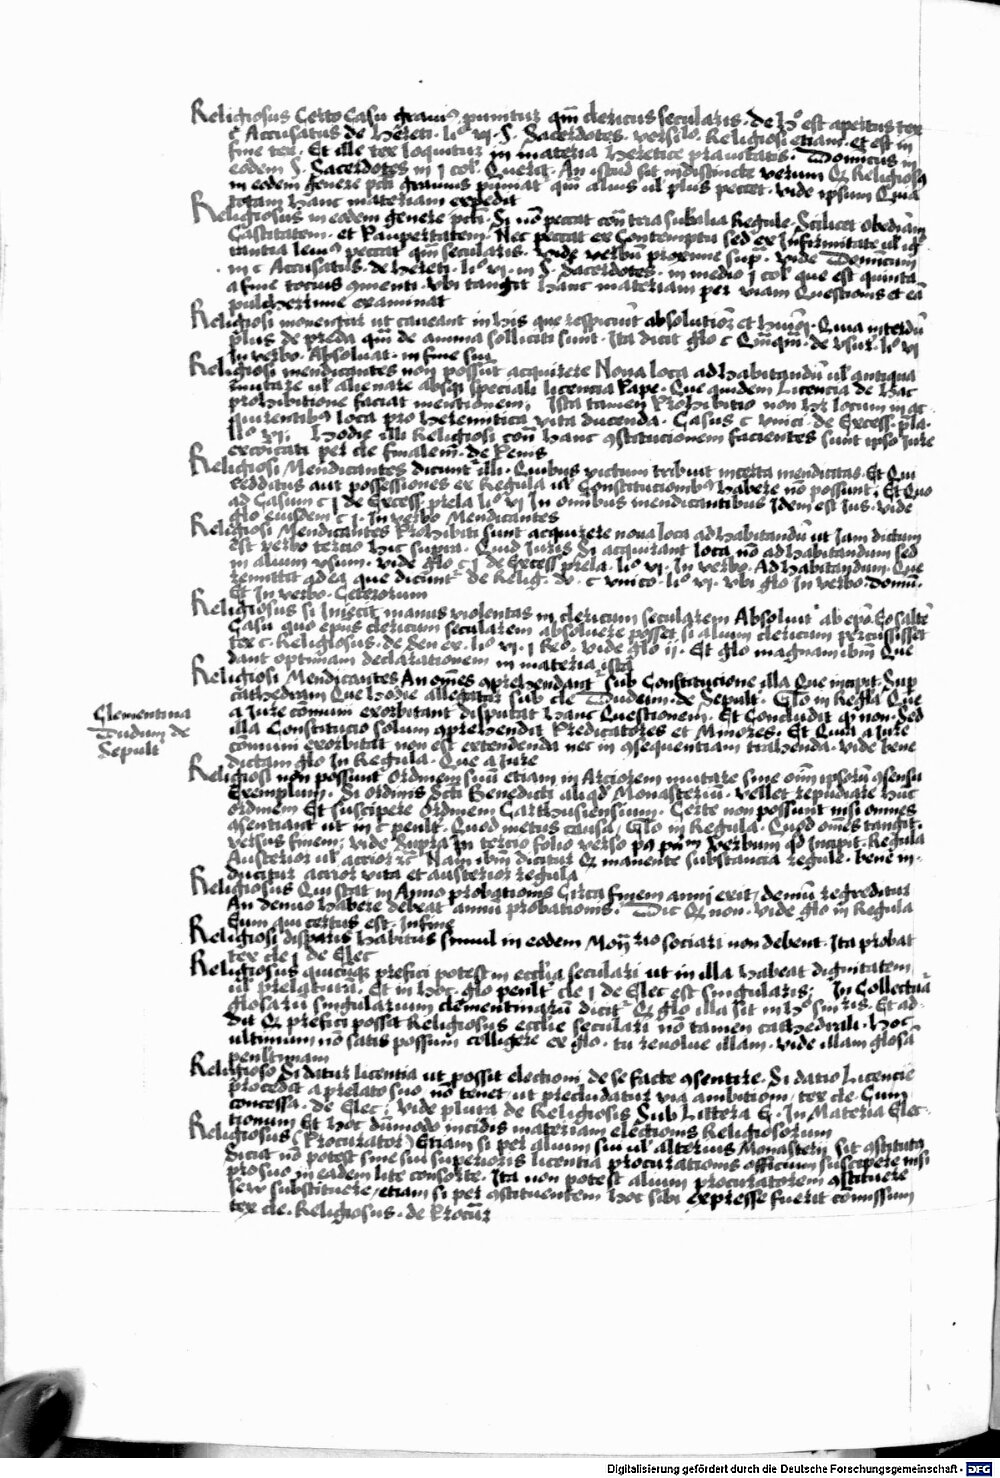 Religiosus Certo Casu graui9 punitur qm̄ clericus secularis. de hͦ est apertus tex
c̄ Accusatus de hereti. liͦ vi. §. Sacerdotes. versilͦ. Religiosi etiam. et est in
fine tex. Et ille tex loquitur in materia heretice prauitatis. Dominicus in
eodem §. Sacerdotes in j col. Querit. An istud sit indistincte verum Qz Religiosꝰ
in eodem genere pcti grauius puniat' qm̄ alius ul' plus peccet. vide ipsum Quia
totam hanc materiam expedit
Religiosus in eodem genere pcti. Si nō peccat con̄ tria substā̄lia Regule. Scilicet obediām
Castitatem. et Paupertatem. Nec peccat ex Contemptu sed ex Infirmitate ul' ig°
rantia leuiꝰ peccat qm̄ secularis. Vide verbū proxime supͣ. vide Dominicum
in c Accusatus. de hereti. liͦ vi. in §. Sacerdotes. in medio j col' que est quinta
a fine tocius ꝯmenti. vbi tangit hanc materiam per viam Questionis et eā
pulcherrime examinat
Religiosi monentur ut caueant in his que respiciūt absolutiōꝫ et Quia interdū
plus de preda qm̄ de anima solliciti sunt. Ita dicit glo c Qm̄qm̄. de vsur. liͦ vi
In verbo. Absoluat. in fine sui
Religiosi mendicantes non possūt acquirere Noua loca ad habitandū ul' antiqua
mutare ul' alienare absqꝫ speciali licencia Pape. Que quidem Licencia de hac
prohibitione faciat mentionem. Ista tamen Prohibitio non hꝫ locum in ac
quirentibꝰ loca pro heremitica vita ducenda. Casus c vnici. de Excess. p̄la.
liͦ vi. Hodie illi Religiosi con̄ hanc ꝯstitucionem facientes sunt ipso Iure
excōicati per cle finalem. de Penis
Religiosi Mendicantes dicunt' illi. Quibus victum tribuit incerta mendicitas. Et Qui
redditus aut possessiones ex Regula ul' Constitucionibꝰ habere nō possunt. Et Quo
ad Casum c j de Excess prela liͦ vi In omnibus mendicantibus Idem est Ius. vide
glo eiusdem c j. In verbo Mendicantes
Religiosi Mendicantes Prohibiti sunt acquirere noua loca ad habitandū ut Iam dictum
est verbo tercio hic supra. Quid Iuris Si acquirant loca nō ad habitandum sed
in alium vsum. vide glo c j de Excess prela. liͦ vi. In verbo. Ad habitandum. Que
remittit ad ea que dicunt' de Relig. do. c vnico. liͦ vi. vbi glo In verbo. domū.
Et In verbo. Ceterorum
Religiosus si Iniecit manus violentas in clericum secularem Absoluit' ab epō. Eo saltē
Casu quo epus clericum secularem absoluere posset si alium clericum percussisset
tex c. Religiosus. de sen ex. liͦ vi. j Reͦ. vide glo ij. Et glo magnam ibm̄ Que
dant optimam declarationem in materia ista
Religiosi Mendicantes An om̄es ꝯprehendant' sub Constitucione illa Que incipit. Sup
cathedram Que hodie allegatur sub cle Dudum. de Sepult. Glo in Regla Que
a Iure cōmuni exorbitant disputat hanc Questionem. Et Concludit qͥ non. Sed
illa Constitucio solum ꝯprehendit Predicatores et Minores. Et Quia a Iure
cōmuni exorbitat non est extendenda nec in ꝯsequentiam trahenda. vide bene
dictam glo In Regula. Que a Iure
Religiosi non possunt Ordinem suū etiam in Arciorem mutare sine omī ipsorū ꝯsensu
Exemplum. Si ordinis Scti Benedicti aliqd' Monasteriū. vellet repudiare hūc
ordinem Et suscipere Ordinem Carthusiensium. Certe non possunt nisi omnes
ꝯsentiant ut in c penlt. Quod metus causa / Glo in Regula. Quod om̄es tangit.
versus finem; vide Supra In tercio folio verso Verbum qd Incipit. Regula
Austerior ul' actior ꝛc̄ Nam ibm̄ dicitur Qz manente substancia regule. bene in
ducitur actior vita et austerior regula
Religiosus Qui stat in Anno probationis Circa finem anni exit / demū regreditur
An denuo habere debeat annū probationis. Dic Qz non. vide glo in Regula
Eum qui certus est. In fine
Religiosi disparis habitus simul in eodem Mon̄rio sociari non debent. Ita probat
tex cle j de Elec
Religiosus quicūqꝫ prefici potest in ecclīa seculari ut in illa habeat dignitatem
ul' prelaturā. Et in hoc. glo penlt' cle j de Elec est singularis; In Collectura
glosarū singularium clementinarū dicit' Qz glo illa sit in hͦ sin̄ris. Et ad-
dit Qz prefici possit Religiosus ecclīe seculari nō tamen cathedrali. Hoc
ultimum nō satis possum colligere ex glo. tu reuolue illam. vide illam glosā
penltimam
Religioso Si datur licentia ut possit electioni de se facte ꝯsentire. Si datio Licencie
procedit a prelato suo nō tenet / ut precludatur via ambitioni / tex cle. Cum
concessa. de Elec; vide plura de Religiosis Sub Littera E. In Materia Elec-
tionum Et hoc dūmodo incidis materiam electionis Religiosorum
Religiosus (Procurator) Etiam si per alium sui ul' alterius Monasterij sit ꝯstitutꝰ
dicit nō potest sine sui superioris licentia procurationis officium suscipere nisi
pro suo in eadem lite consorte. Ita non potest alium procuratorem ꝯstituere
seu substituere / etiam si per ꝯstituentem hoc sibi expresse fuerit comissum
tex cle. Religiosus. de Procur
Clementina
Dudum de
Sepult'
Digitalisierung gefördert durch die Deutsche Forschungsgemeinschaft - DFG